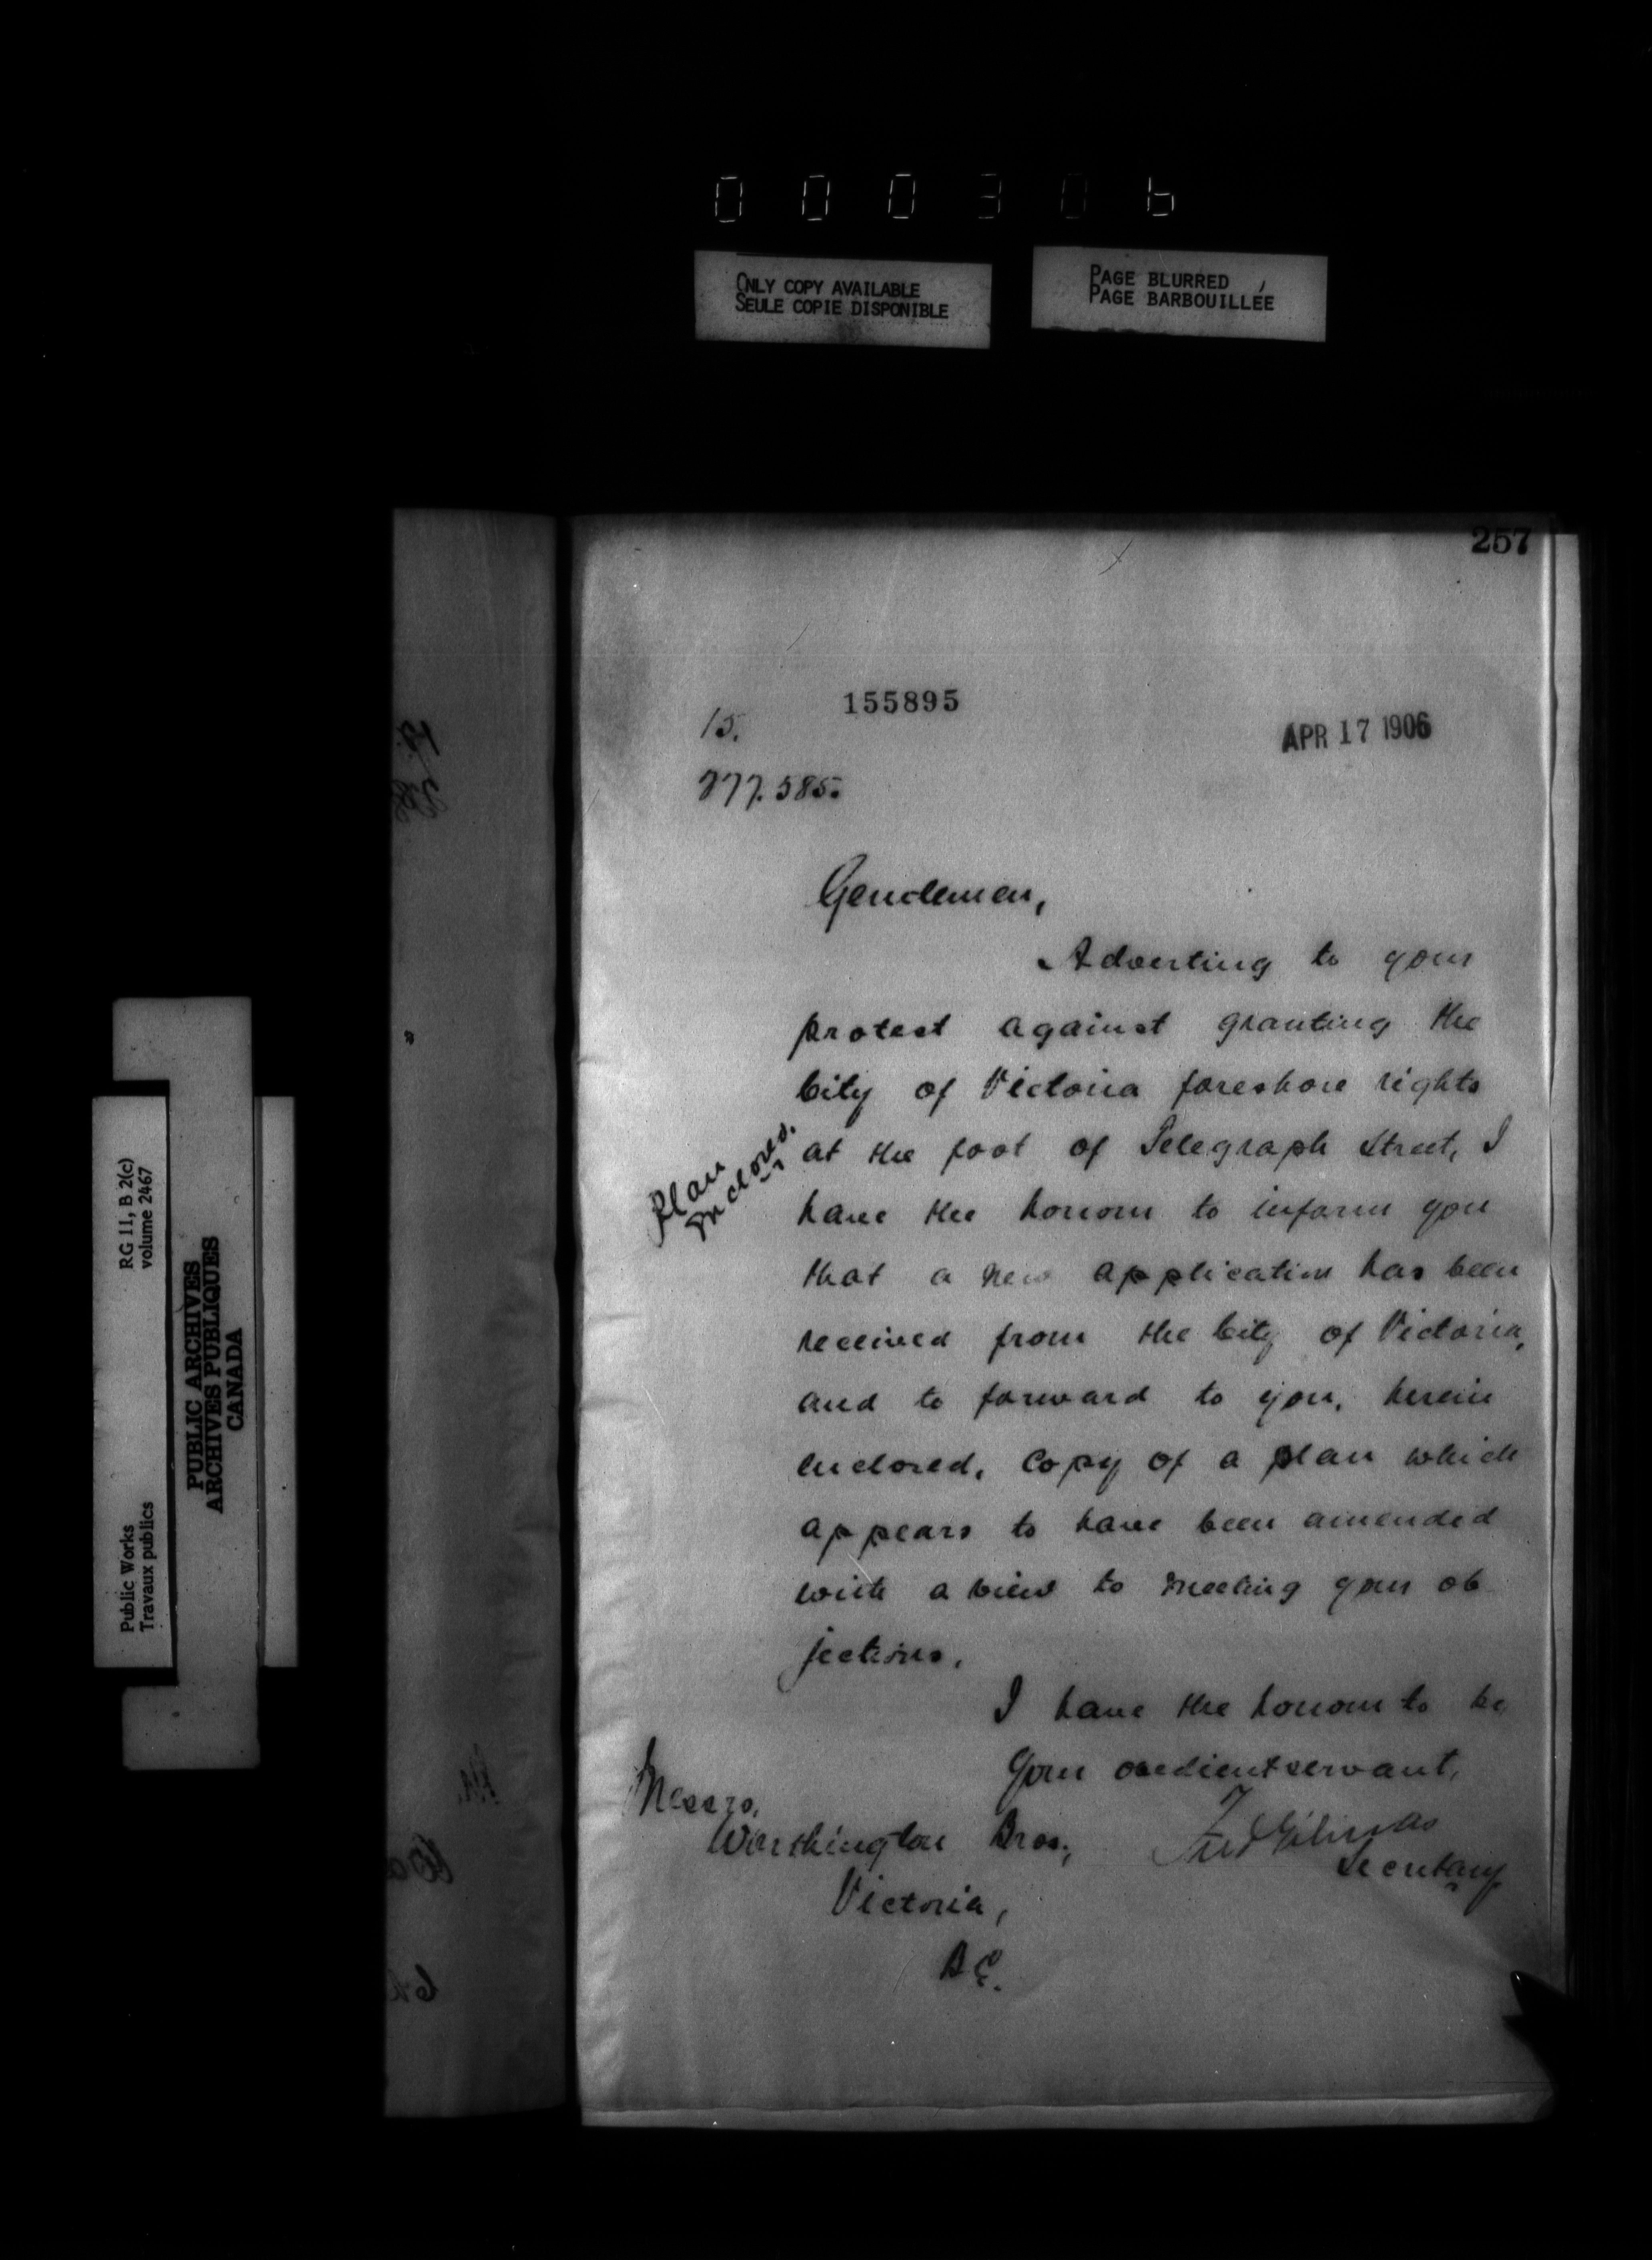 000306
ONLY COPY AVAILABLE
SEULE COPIE DISPONIBLE
PAGE BLURRED
PAGE BARBOUILLÉE
257
155895
15.
APR 17 1906
277.585.
Gentlemen,
Adverting to your
protest against granting the
City of Victoria foreshore rights
at the foot of Telegraph Street, I
have the honour to inform you
that a new application has been
received from the City of Victoria,
and to forward to you, herein
enclosed, copy of a plan which
appears to have been amended
with a view to meeting your ob
jections.
Plan
Enclosed.
I have the honour to be
Your obedient servant,
Fred Gélinas
Secretary
Messrs.
Worthington Bros.,
Victoria,
B.C.
Public Works
Travaux publics
RG 11, B 2(c)
volume 2467
PUBLIC ARCHIVES
ARCHIVES PUBLIQUES
CANADA